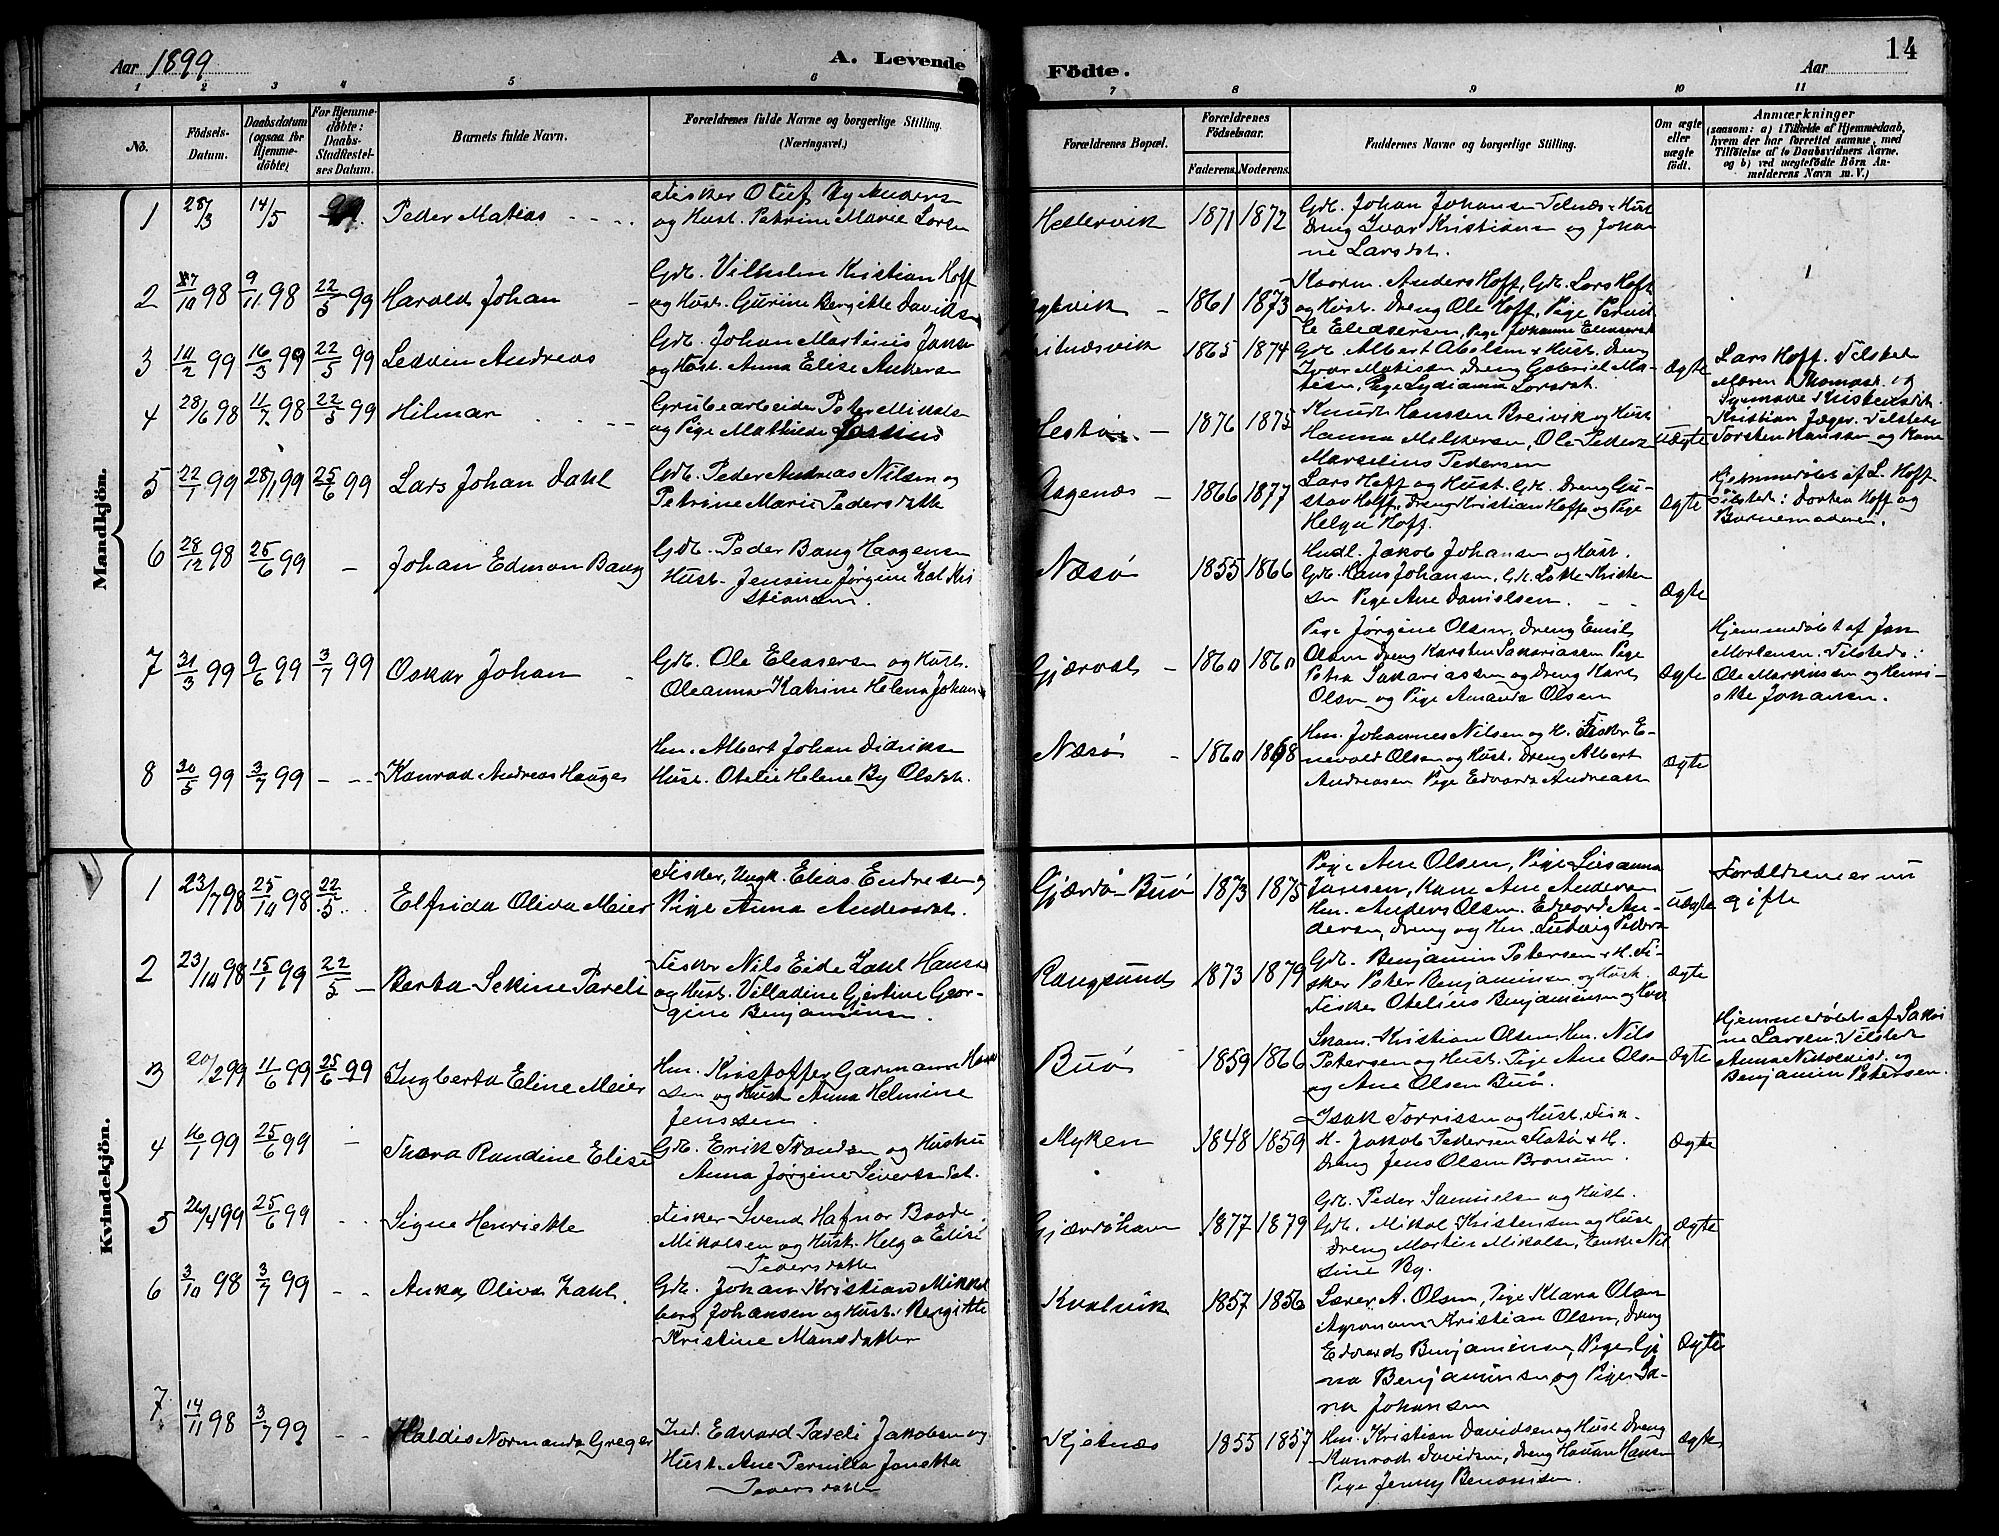 Aar 1899
A. Levende Födte.
Aar
14
1 2 3 4 5 6 7 8 9 10 11
No.
Födsels-Datum.
Daabsdatum (ogsaa for Hjemmedöbte)
For Hjemmedöbte: Daabs-Stadfestelses Datum.
Barnets fulde Navn.
Forældrenes fulde Navne og borgerlige Stilling.
(Næringsvei.)
Forældrenes Bopæl.
Forældrenes Födselsaar.
Faderens. Moderens.
Faddernes Navne og borgerlige Stilling.
Om ægte eller uægte födt.
Anmærkninger
(saasom: a) i Tilfælde af Hjemmedaab, hvem der har forrettet samme, med Tilföielse af to Daabsvidners Navne, og b) ved uægtefödte Börn Anmelderens Navn m. V.)
Mandkjön.
1 28/3 14/5 Peder Matias
Fisker Oluf By Anders
og Hust. Petrine Marie Loren
Hellervik 1871 1872
Gdb. Johan Johansen Hust
Dreng Ivar Kristiansen og Johan
ne Larsdat.
2 /10 98 9/11 98 22/5 99 Harald Johan
Gdb. Vilhelm Kristian Hoff
og Hust. Gurine Bergitte Daviks
1861 1873
Anders Hoff, Gdb. Lars Hoff
og Hust. Dreng Ole Hoff, Pige Pernil
le Eleasersen, Pige Johanne Eleasersd
3 /2 99 16/3 99 22/5 99 Ledvin Andreas
Gdb. Johan Martinus Janse
og Hust. Anna Elise Andersen
1865 1874
Gdb. Albert Abelsen & Hust. Dreng
Ivar Matisen Dreng Gabriel Ma-
tisen, Pige Lydianna Larsdat.
Ægte
Lars Hoff. Tilstede
Maren Thomasd. og
4 28/6 98 11/7 98 22/5 99 Hilmar
Grubearbeider Peter Mikals
og Pige Mathilde
Hestø 1876 1875
Knudt Hanssen Breivik og Hust
Hanna Melkersen, Ole Peders
Marselius Pedersen
uægte
Kristian Jæger. Tilstede
Torsten Hanssen og Kone
5 22/1 99 28/1 99 25/6 99 Lars Johan Dahl
Gdb. Peder Andreas Nilsen og
Petrine Marie Pedersdatte
Aagenæs 1866 1877
Lars Hoff og Hust. Gdb. Dreng Gu-
stav Hoff, Dreng Kristian Hoff og Pige
Helga Hoff.
Ægte
Hjemmedöbt af L. Hoff
Tilstede: Dortea Hoff og
Barnemoderen.
6 28/12 98 25/6 99 Johan Edmon Bang
Gdb. Peder Bang Haagensen
Hust. Jensine Jørgine Zal Kri
stiansen.
Næsø 1855 1866
Hndl. Jakob Johansen og Hust.
Gdb. Hans Johansen, Gdb. Lotte Kristen
sen Pige Ane Danielsen.
Ægte
7 31/3 99 9/6 99 3/7 99 Oskar Johan
Gdb. Ole Eleasersen og Hust.
Oleanna Katrine Helena Johan
Gjærval 1860 1860
Pige Jørgine Olsen, Dreng Emil
Olsen Dreng Karsten Sakariasen Pige
Petra Sakariassen og Dreng Karl
Olsen og Pige Amanda Olsen
Ægte
Hjemmedöbt af Jan
Mortensen. Tilstede:
Ole Markussen og Henri-
ette Johansen.
8 30/5 99 3/7 99 Konrad Andreas Hauges
Hm. Albert Johan Didriksen
Hust. Otelie Helene By Olsdat.
Næsø 1860 1868
Hm. Johannes Nilsen og H. Fisker E-
nevold Olsen og Hust. Dreng Albert
Andreasen Pige Edvarda Andreasen
Ægte
Kvindekjön.
1 23/7 98 25/10 98 22/5 Elfrida Oliva Meier
Fisker, Ungk. Elias Endresen og
Pige Anna Andersdat.
Gjærdø Buø 1873 1875
Pige Ane Olsen, Pige Susanna
Jansen, Kone Ane Andersen
Hm. Anders Olsen. Edvard An-
dersen, Dreng og Hm. Ludvig Peders
uægte
Forældrene er nu
gifte
2 23/10 98 15/1 99 22/5 Berta Sekine Pareli
Fisker Nils Eide Zahl Hanse
og Hust. Villadine Gjertine Geor-
gine Benjaminsen.
Rangsund 1873 1879
Gdb. Benjamin Petersen & H. Fi-
sker Peter Benjaminsen og Hust.
Fisker Otelius Benjaminsen og Hust
Ægte
3 20/2 99 11/6 99 25/6 99 Ingberta Eline Meier
Hm. Kristoffer Garmann Han
sen og Hust Anna Helmine
Jenssen.
Buø 1859 1866
Kristian Olsen, Hm. Nils
Petersen og Hust. Pige Ane Olsen
og Ane Olsen Buø.
Ægte
Hjemmedöbt af Saki
ne Larsen. Tilstede
Anna Nikolaisd. og
Benjamin Petersen.
4 16/1 99 25/6 99 Thora Randine Elise
Gdb. Erik Trondsen og Hustru
Anna Jørgine Sivertsdat.
Myken 1848 1859
Isak Torrissen og Hust. Fisk-
Jakob Pedersen Flatø & H.
Dreng Jens Olsen Bronum.
Ægte
5 26/4 99 25/6 99 Signe Henriette
Fisker Svend Hafnor Baade
Mikalsen og Hust. Helga Elise
Pedersdatter
Gjærdøhavn 1877 1879
Gdb. Peder Samuelsen og Hust.
Gdb. Mikal Kristensen og Hust
Dreng Martin Mikalsen, Enke Nil
sine By.
Ægte
6 3/10 98 3/7 99 Anka Oliva Zahl.
Gdb. Johan Kristian Mikkel
borg Johansen og Hust. Bergitte
Kristine Monsdatter
Kvalvik 1857 1856
Lærer A. Olsen, Pige Klara Olsen
Agronom Kristian Olsen, Dreng
Edvard Benjaminsen, Pige Gi
na Benjaminsen og Pige Sa-
na Johansen
Ægte
7 14/11 98 3/7 99 Haldis Normanda Greger
Ind. Edvard Pareli Jakobsen og
Hust. Ane Pernilla Jonetta
Pedersdatter
Kjelnæs 1855 1857
Hm. Kristian Davidsen og Hust Dreng
Konrad Davidsen, Dreng Håvan Hansen
Pige Jenny Benonisen.
Ægte